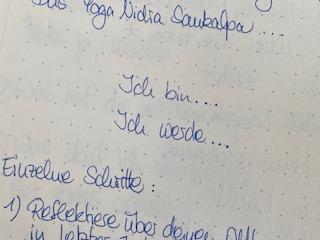 Das Yoga Nidra Sankalpa ....
Ich bin....
Ich werde....
Einzelne Schritte :
1) Reflektiere über deinen
in letzter